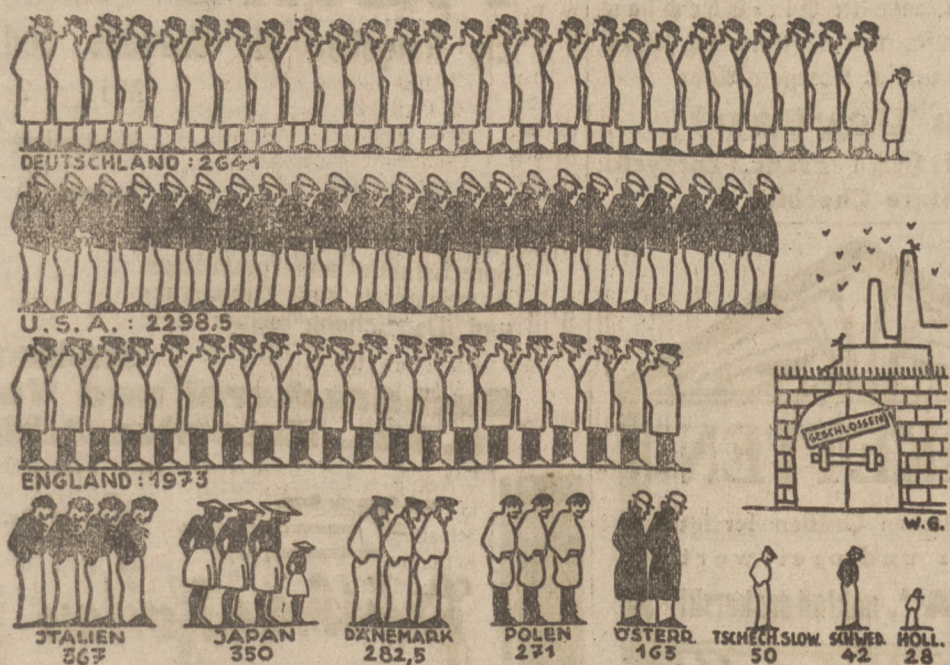 DEUTSCHLAND: 2641
U.S.A.: 2298,5
ENGLAND: 1973
GESCHLOSSEN
W.G.
JTALIEN
367
JAPAN
350
DÄNEMARK
282,5
POLEN
271
ÖSTERR.
163
TSCHECH.SLOW.
50
SCHWED.
42
HOLL.
28